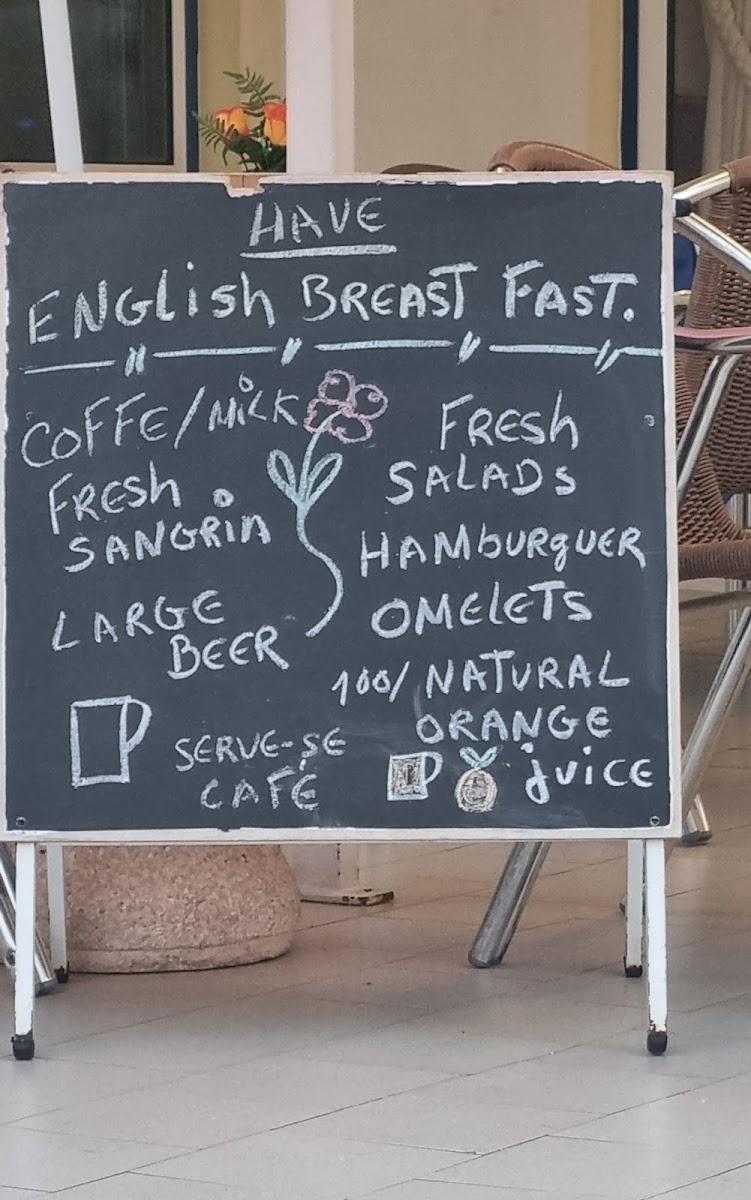 HAVE
ENGLish BREAST FAST.
COFFE/MiLK
FRESH
SANGRiA
LARGE
BEER
SERVE-SE
CAFÉ
FRESh
SALADs
HAMbURgUER
OMELETS
100/ NATURAL
ORANGE
juiCE